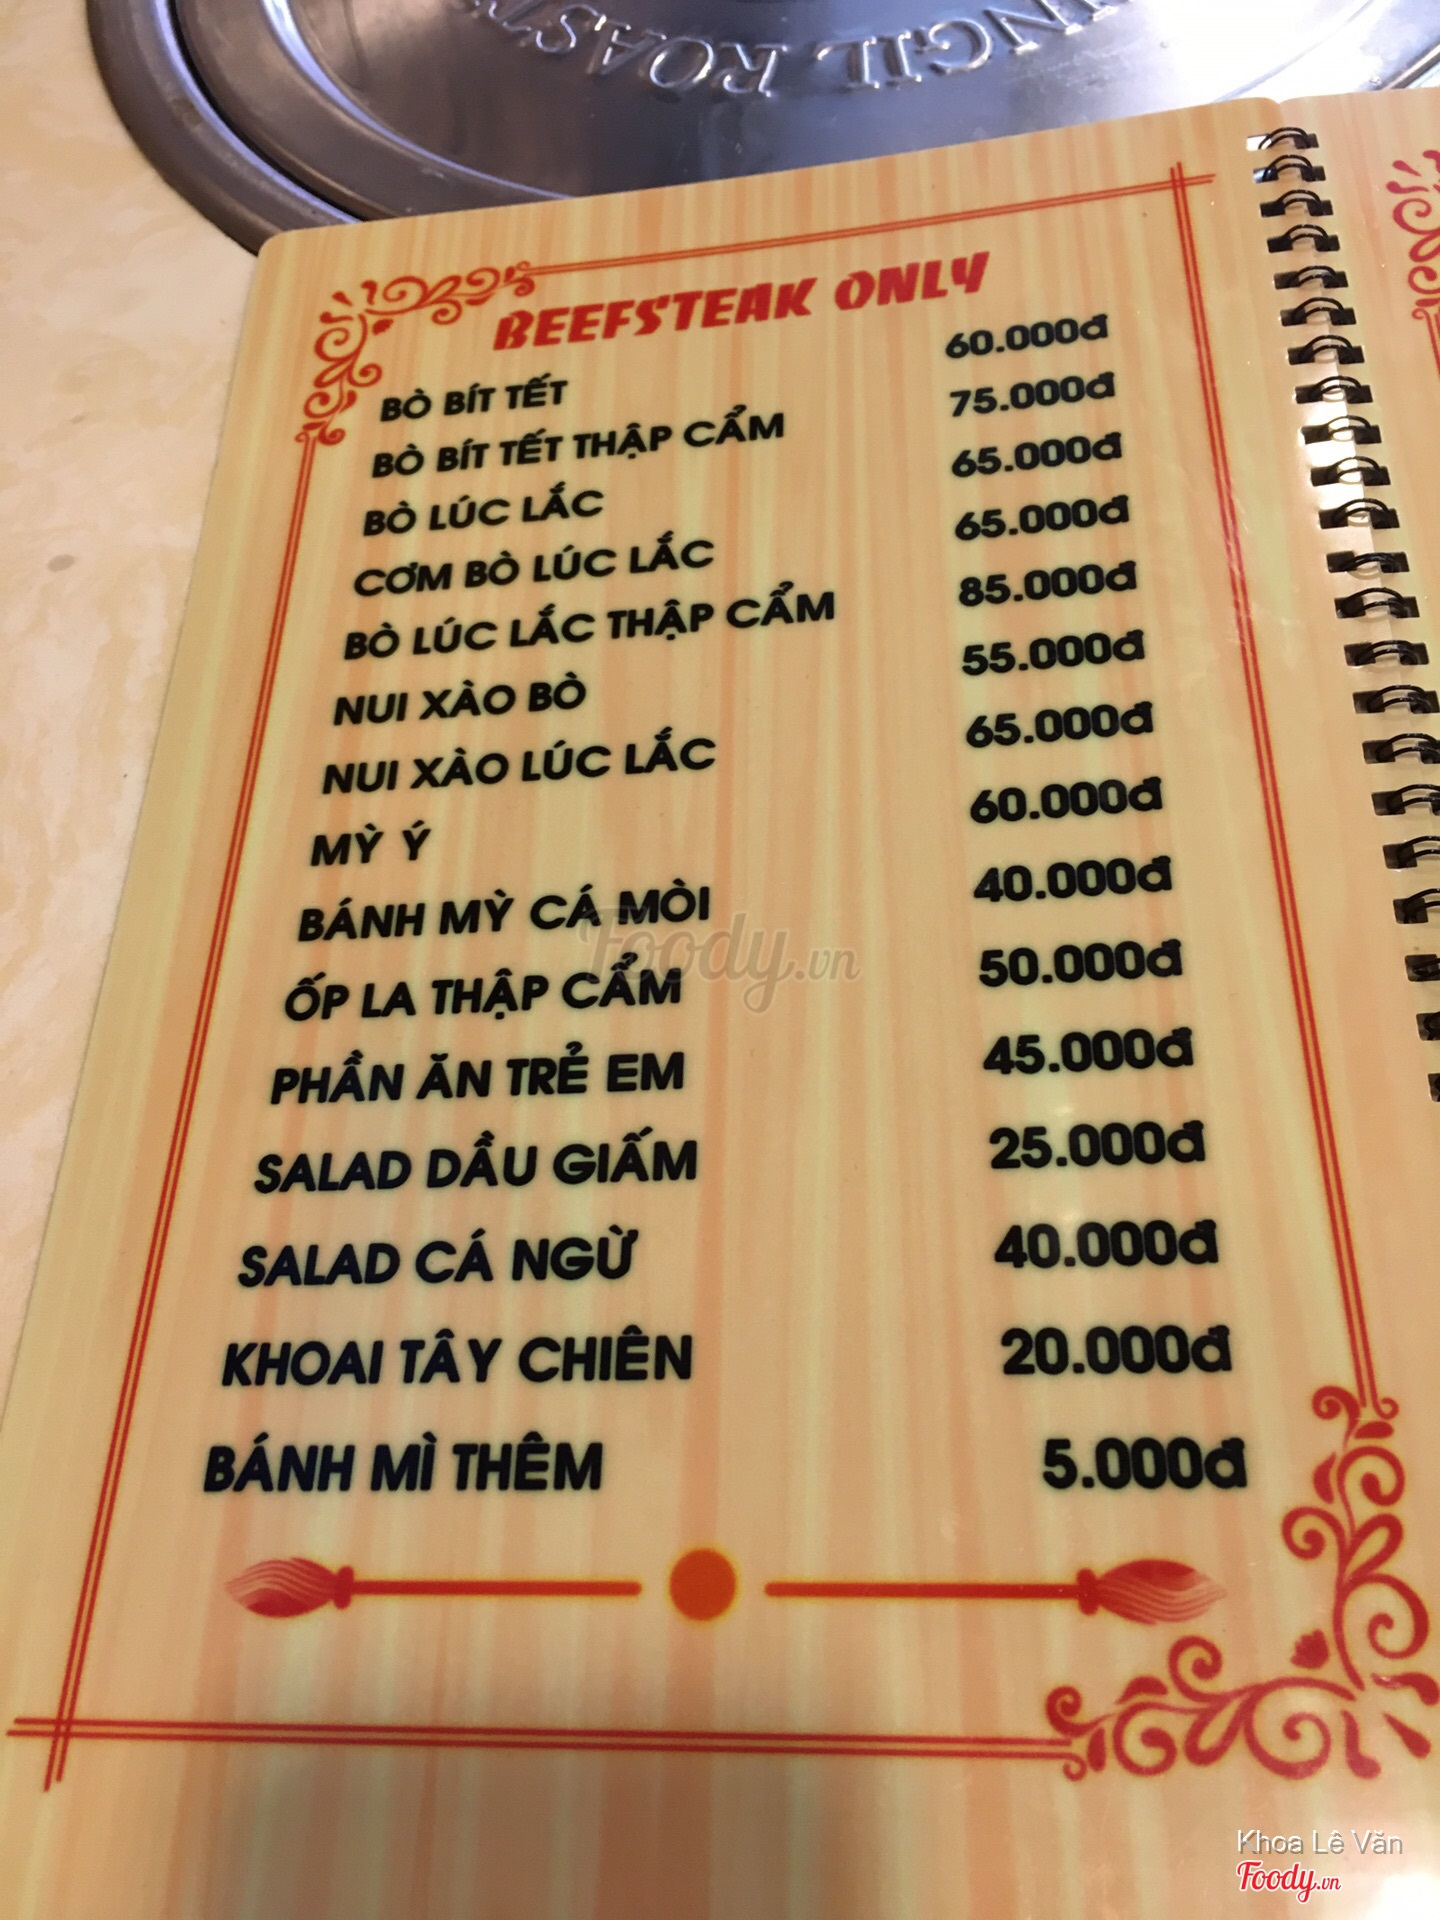 NGIL ROAST
BEEFSTEAK ONLY
BÒ BÍT TẾT 60.000đ
BÒ BÍT TẾT THẬP CẨM 75.000đ
BÒ LÚC LẮC 65.000đ
CƠM BÒ LÚC LẮC 65.000đ
BÒ LÚC LẮC THẬP CẨM 85.000đ
NUI XÀO BÒ 55.000đ
NUI XÀO LÚC LẮC 65.000đ
MỲ Ý 60.000đ
BÁNH MỲ CÁ MÒI 40.000đ
ỐP LA THẬP CẨM 50.000đ
PHẦN ĂN TRẺ EM 45.000đ
SALAD DẦU GIẤM 25.000đ
SALAD CÁ NGỪ 40.000đ
KHOAI TÂY CHIÊN 20.000đ
BÁNH MÌ THÊM 5.000đ
Foody.vn
Khoa Lê Văn
Foody.vn